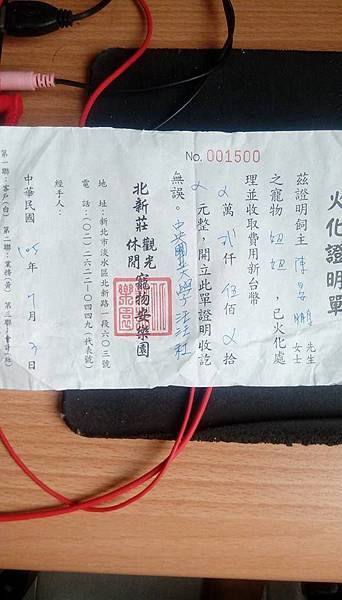 火化證明單
No. 001500
茲證明飼主 陳昱鵬 先生
女士
之寵物 妞妞，已火化處
理並收取費用新台幣
萬 貳 仟 伍 佰 拾
元整，開立此單證明收訖
無誤。中央大學汪汪社
北新莊 觀光
休閒 寵物安樂園
地 址：新北市淡水區北新路一段六〇三號
電 話：(〇二)二六二二-一〇四四九(代表號)
經手人：
中華民國 105 年 7 月 3 日
第一聯：客戶(白) 第二聯：業務(黃) 第三聯：會計(紅)